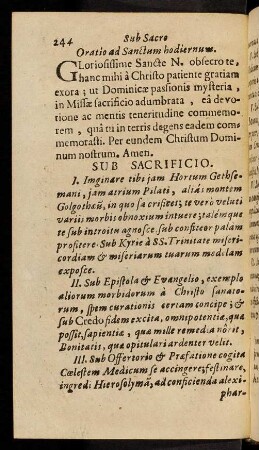 244 Sub Sacro
Oratio ad Sanctum hodiernum.
GLoriosissime Sancte N. obsecro te,
hanc mihi à Christo patiente gratiam
exora; ut Dominicæ passionis mysteria,
in Missæ sacrificio adumbrata, eâ devo-
tione ac mentis teneritudine commemo-
rem, quâ tu in terris degens eadem com-
memorasti. Per eundem Christum Domi-
num nostrum, Amen.
SUB SACRIFICIO.
I. Imginare tibi jam Hortum Gethse-
mani, jam atrium Pilati, aliàs montem
Golgothæū, in quo sa crificet; te verò veluti
variis morbis obnoxium intuere; talémque
te sub introitu agnosce. sub confiteor palam
profitere. Sub Kyrie à SS. Trinitate miseri-
cordiam & miseriarum tuarum medelam
exposce.
II. Sub Epistola & Evangelio, exemplo
aliorum morbidorum à Christo sanato-
rum, spem curationis certam concipe; &
sub Credo fidem excita, omnipotentiæ, quæ
possit, sapientiæ, quæ mille remedia nôrit,
Bonitatis, quæ opitulari ardenter velit.
III. Sub Offertorio & Præfatione cogita
Cœlestem Medicum se accingere; festinare,
ingredi Hierosolymā, ad conficienda alexi-
phar-